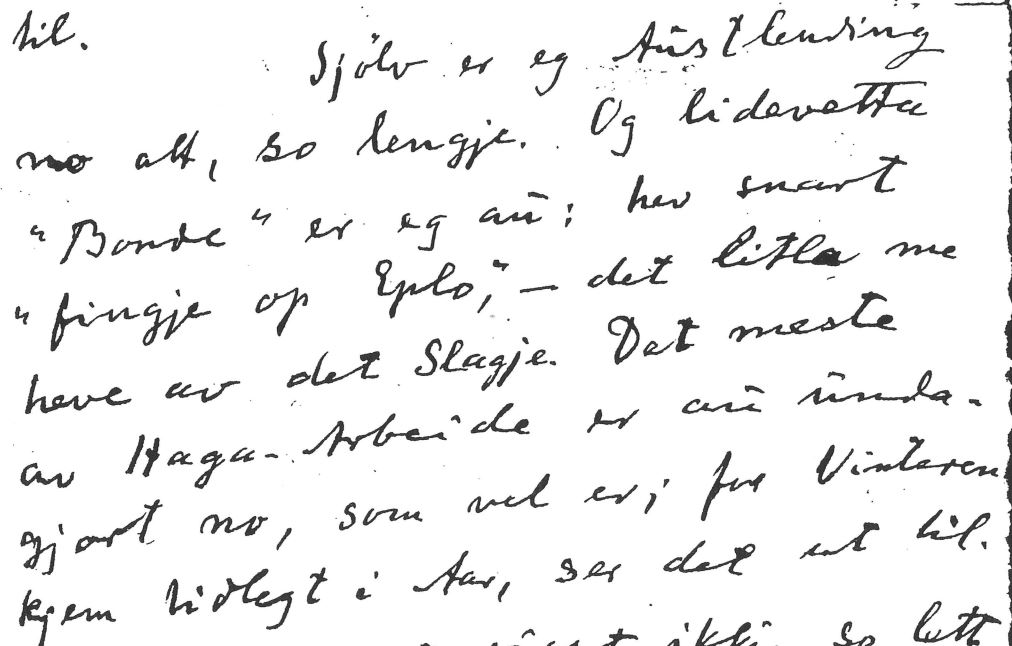 til.
Sjölv er eg Austlending
no alt, so lengje. Og lidevetta
"Bonde" er eg au; hev snart
"fingje op Eplo," — det litla me
heve av det Slagje. Det meste
av Haga-Arbeide er au unda-
gjort no, som vel er; for Vinteren
kjem tidlegt i Aar, ser det ut til.
ikki so lett